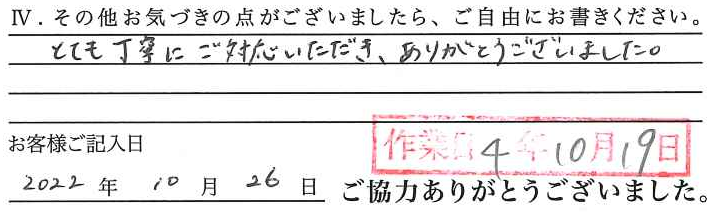 Ⅳ．その他お気づきの点がございましたら、ご自由にお書きください。
とても丁寧にご対応いただき、ありがとうございました。
お客様ご記入日
作業日 4年10月19日
2022年 10月 26日 ご協力ありがとうございました。